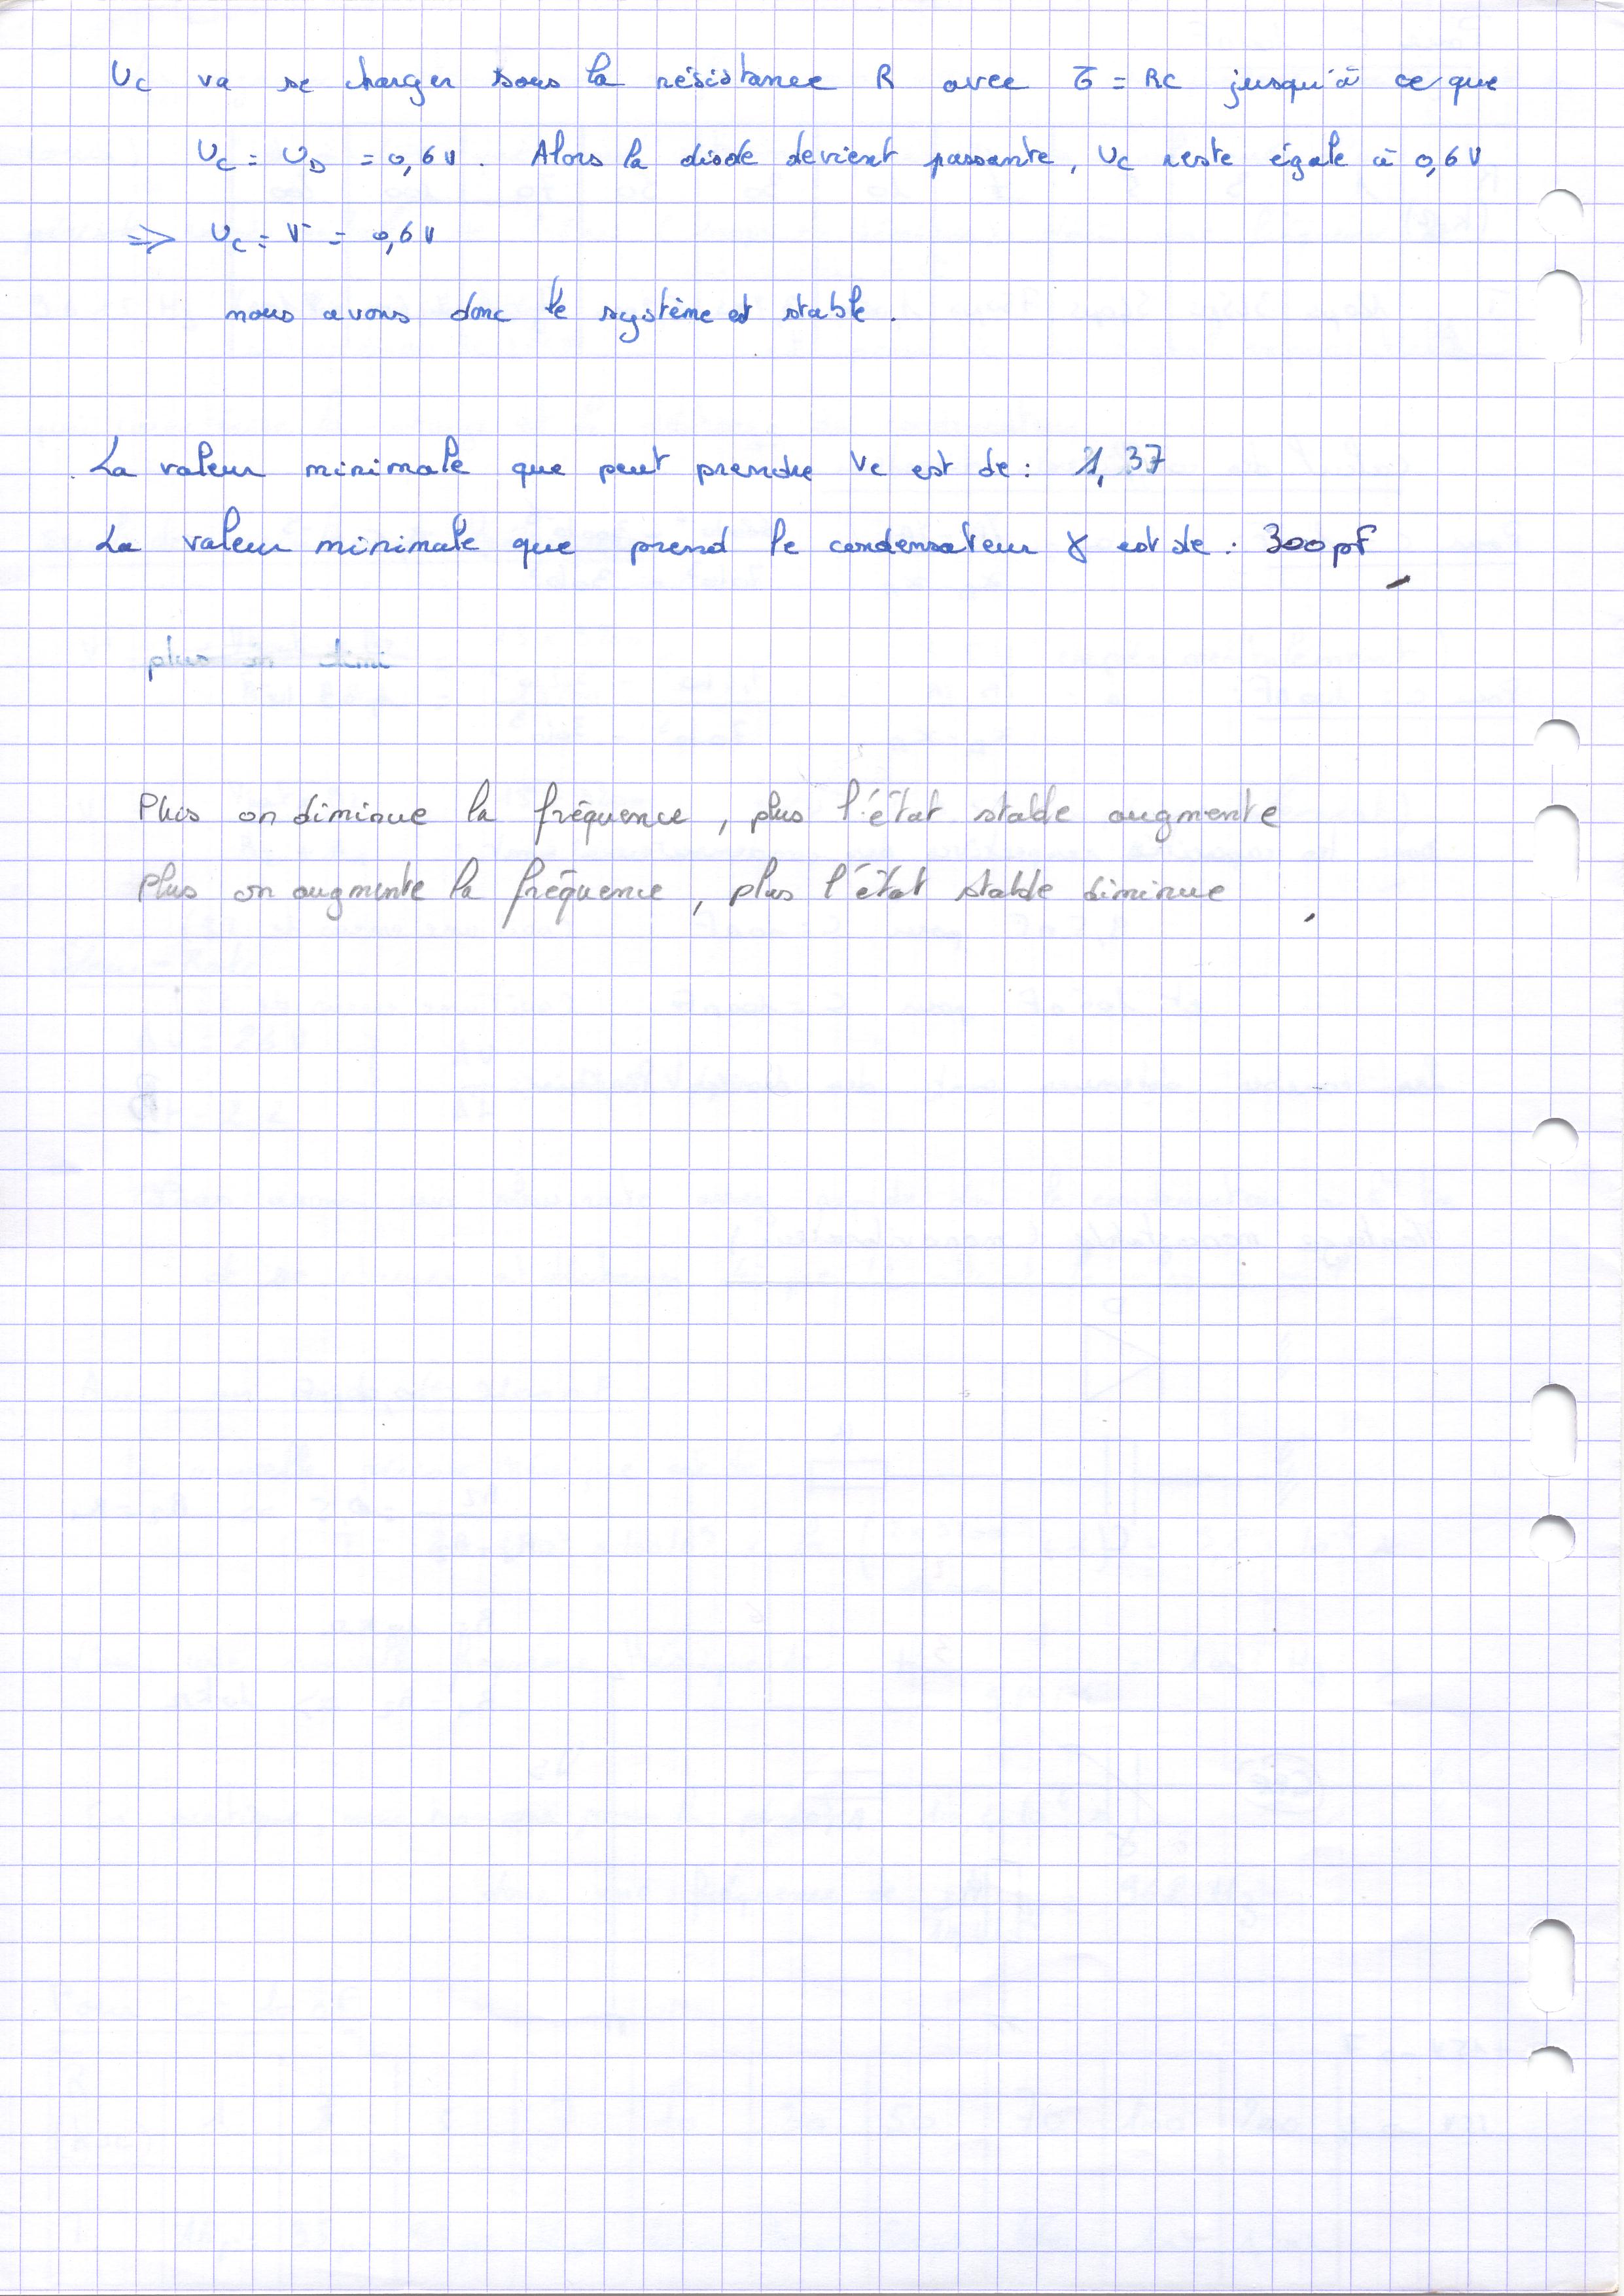 Uc va se charger sous la résistance R avec τ = RC jusqu'à ce que
Uc = UD = 0,6 V. Alors la diode devient passante, Uc reste égale à 0,6 V
=> Uc = V- = 0,6 V
nous avons donc le système est stable.
La valeur minimale que peut prendre Ve est de : 1,37
La valeur minimale que prend le condensateur γ est de : 300 pF
plus on dimi
Plus on diminue la fréquence, plus l'état stable augmente
Plus on augmente la fréquence, plus l'état stable diminue